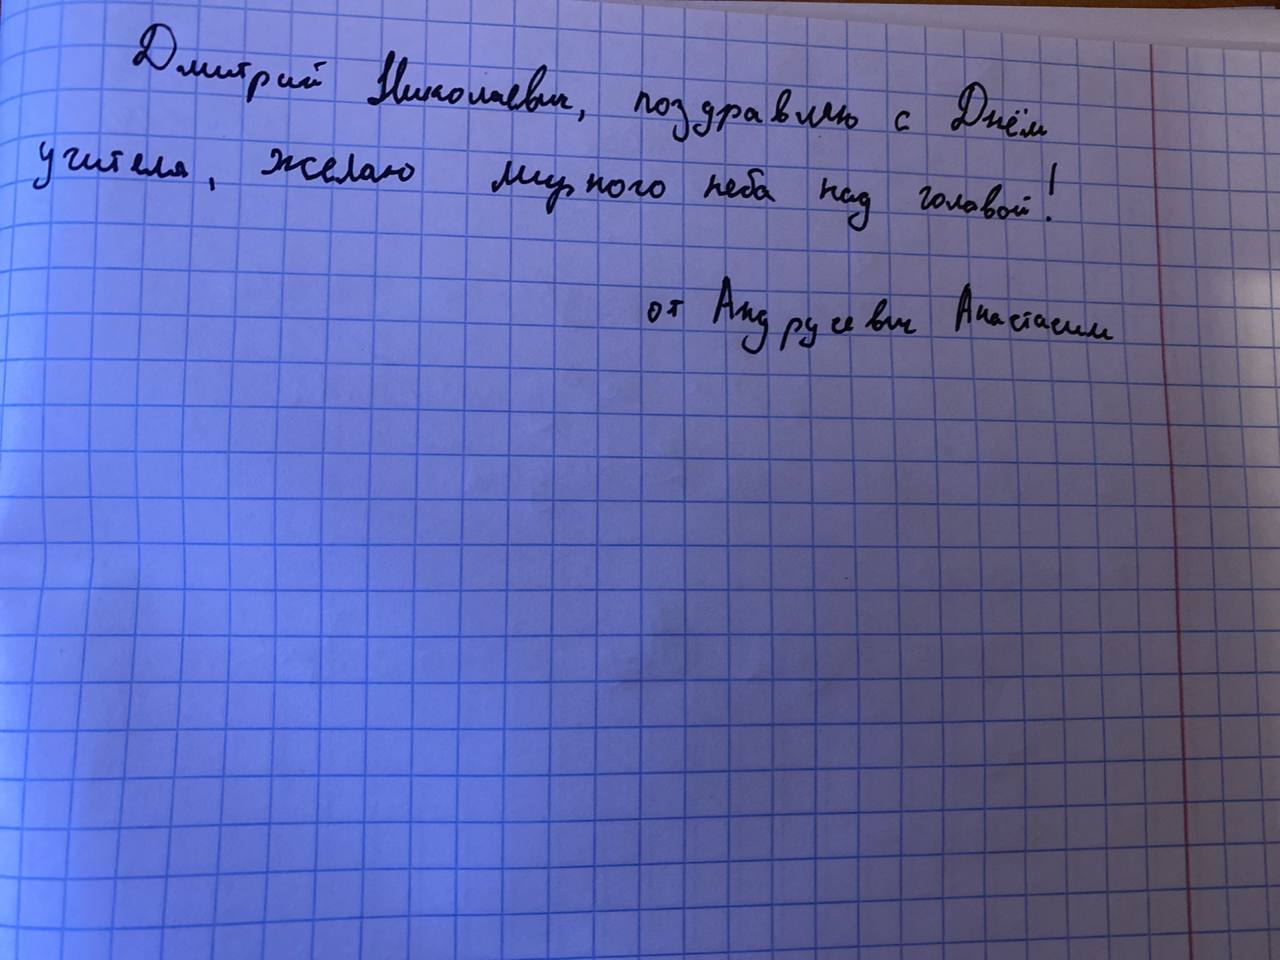 Дмитрий Николаевич, поздравляю с Днём
учителя, желаю мирного неба над головой!
от Андрусевич Анастасии